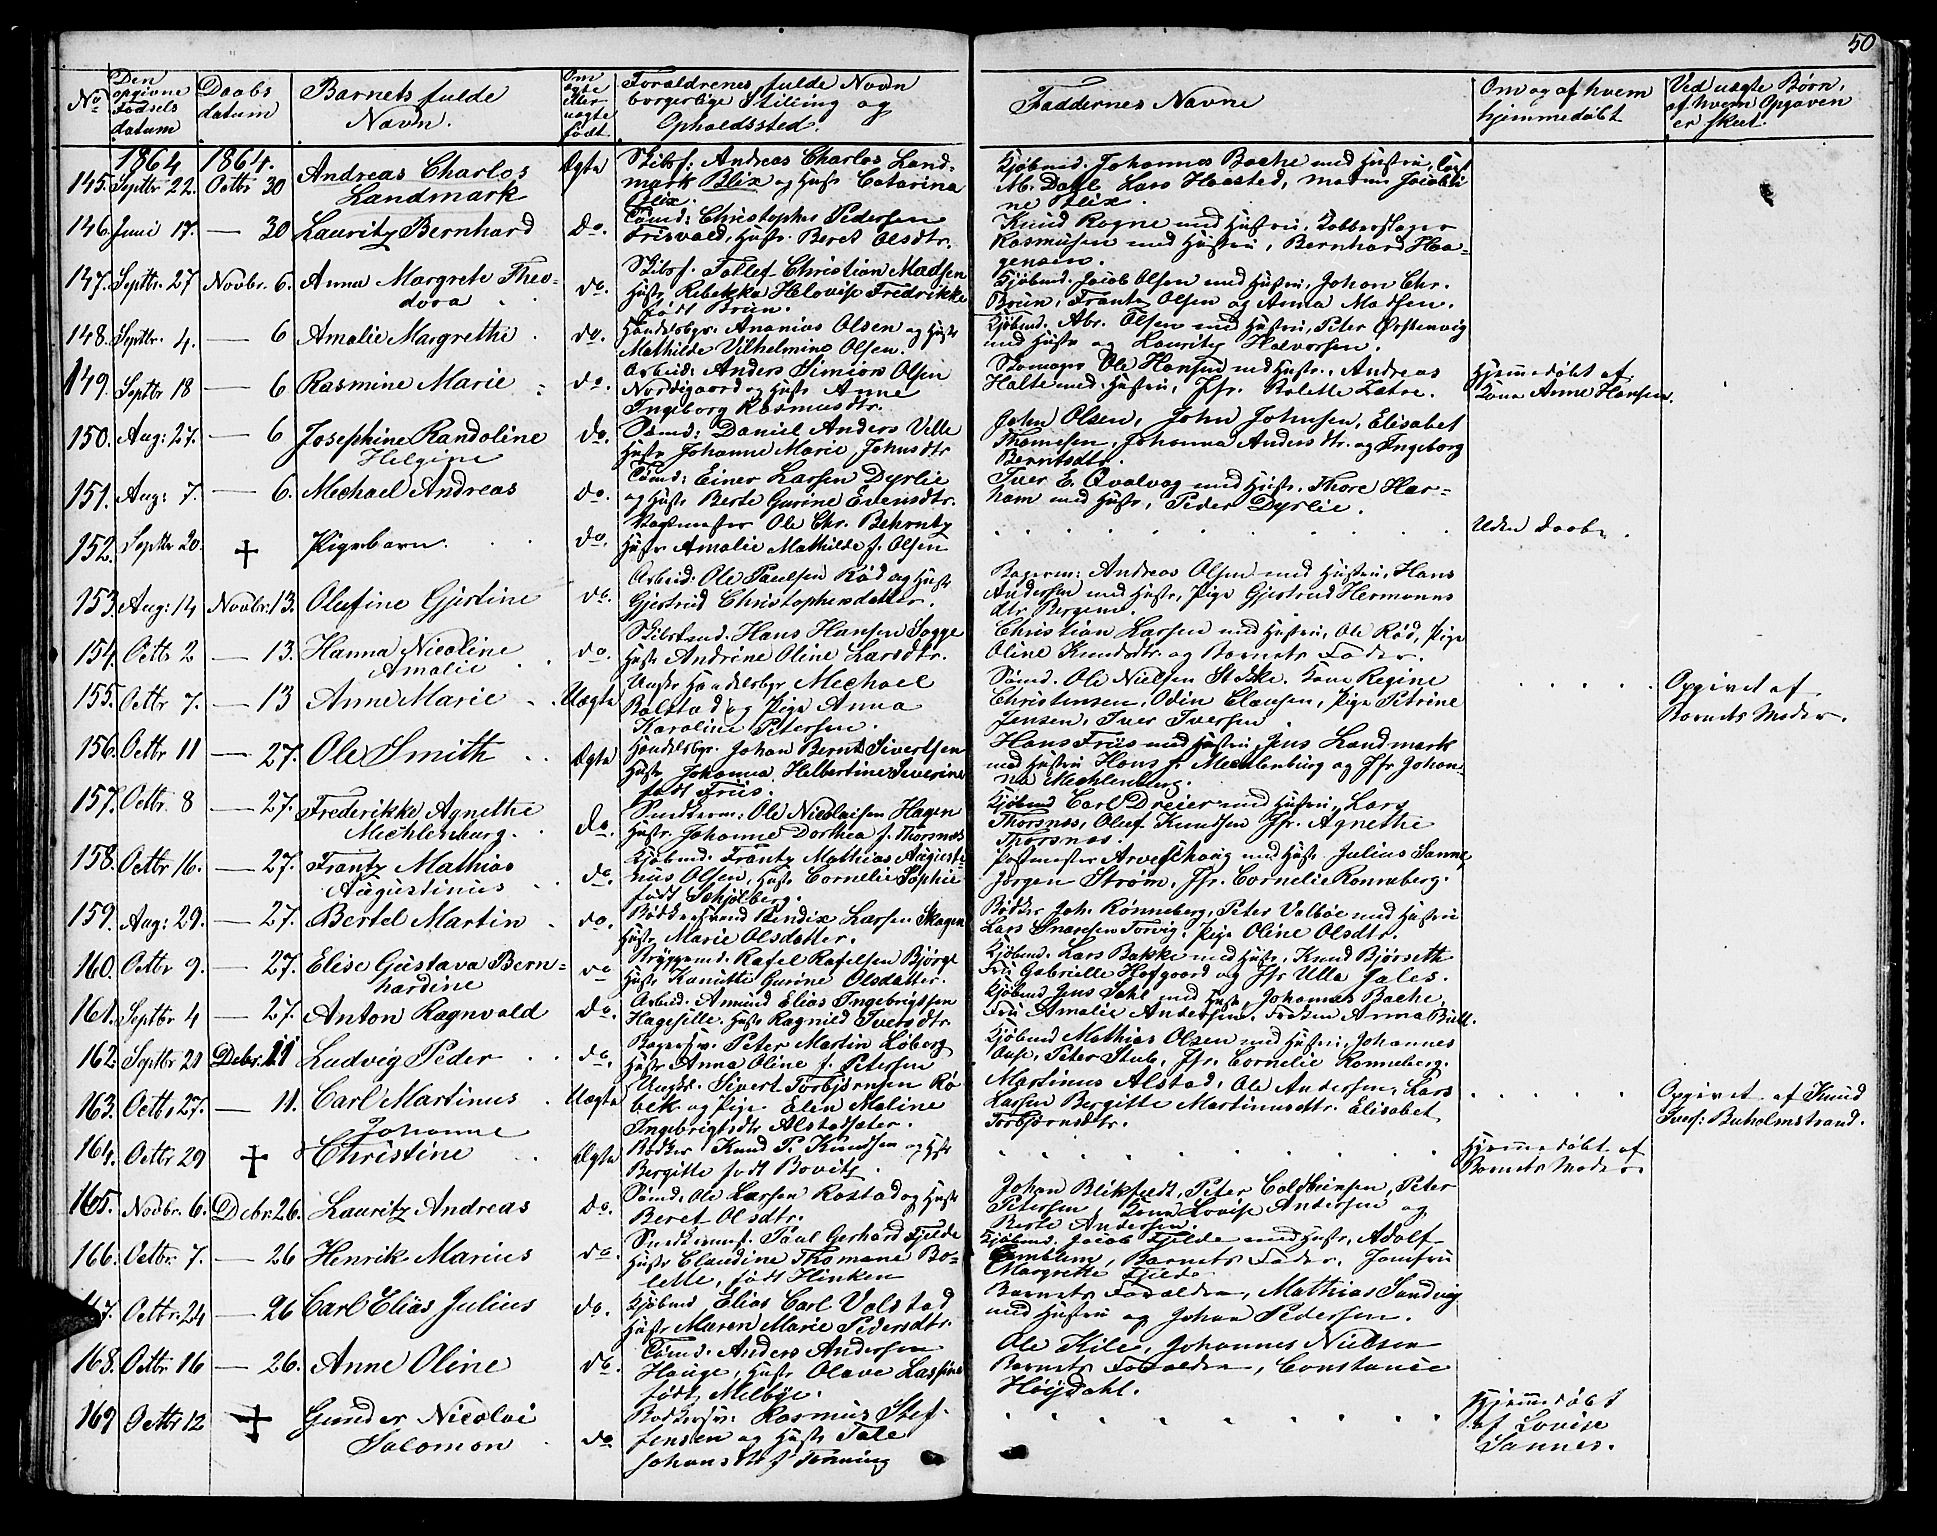 50
No
Den opgivne Fødsels datum
Daabs datum
Barnets fulde Navn.
Om ægte eller uægte født.
Forældrenes fulde Navn borgerlige Stilling og Opholdssted.
Faddernes Navne
Om og af hvem hjemmedøbt
Ved uægte Børn, af hvem Opgaven er skeet.
1864 1864.
145. Septbr 22. Octbr 30 Andreas Charlos Landmark Ægte
Skibsf: Andreas Charlos Land-
mark Blix og Hustr Catarina
Blix.
Kjøbmd. Johannes Backe med Hustru,
M. Dahl Lars Haasted, Jacobi
ne Blix.
146. Juni 17. — 30 Lauritz Bernhard do.
Tømd: Christopher Pedersen
Frisvold, Hustr. Beret Olsdtr.
Knud Rogne med Hustru, Kobberslager
Rasmusen med Hustru, Bernhard Haa-
gensen.
147. Septbr. 27 Novbr. 6. Anna Margrete Theo-
dora do.
Skibsf. Tollef Christian Madsen
Hustr Rebekka Helovise Fredrikke
født Brun.
Kjøbmd. Jacob Olsen med Hustru, Johan Chr.
Brun, Frantz Olsen og Anna Madsen.
148. Septbr. 4. — 6 Amalie Margrethe do.
Handelsbgr. Ananias Olsen og Hustr
Mathilde Vilhelmine Olsen.
Kjøbmd. Abr. Olsen med Hustru, Peter Ørstenvig
med Hustr og Lauritz Halvorsen.
149. Septbr 18 — 6 Rasmine Marie do.
Arbeid: Anders Simion Olsen
Nordigaard og Hustr Anne
Ingeborg Rasmusdtr.
Skomager Ole Hansen med Hustr., Andreas
Holte med Hustru, Jfr. Lætre.
Hjemmedøbt af
Kone Anne Hansen.
150. Aug: 27. — 6 Josephine Randoline
Helgine do.
Sømd: Daniel Anders Ville
Hustr Johanne Marie Johnsdtr
John Olsen, John Johnsen, Elisabet
Thomesen, Johanna Andersdtr. og Ingeborg
Berntsdtr.
151. Aug: 7. — 6. Mechael Andreas do.
Tømd: Einer Larsen Dyrlie
og Hustr Berte Gurine Evensdtr.
Iver E. Qvalvag med Hustr. Thore Har-
ham med Hustr, Peder Dyrlie.
152. Septbr 20. † Pigebarn. do.
Ole Chr. Behrentz
Hustr Amalie Mathilde f. Olsen
Uden Daab.
153. Aug: 14 Novbr: 13. Olufine Gjertine do.
Arbeid: Ole Paulsen Rød og Hustr
Gjertrud Christophersdatter.
Bagerm: Andreas Olsen med Hustru, Hans
Andersen med Hustr, Pige Gjertrud Hermanns
dtr Bergene.
154. Octbr 2 — 13. Hanna Nicoline
Amalie do.
Skibstmd. Hans Hansen Sogge
Hustr Andrine Oline Larsdtr.
Christian Larsen med Hustru, Ole Rød, Pige
Oline Knudsdtr. og Barnets Fader.
155. Octbr 7. — 13 Anne Marie Uægte
Ungkr Handelsbgr Mechael
Bolstad og Pige Anna
Karoline Petersen.
Sømd. Ole Nielsen Stokke. Kone Regine
Christensen, Odin Clausen, Pige Petrine
Jensen, Iver Iversen.
Opgivet af
Barnets Moder.
156. Octbr 11 — 27. Ole Smith Ægte
Handelsbgr. Johan Bernt Sivertsen
Hustr Johanna Helbertine Severine
født Friis.
Hans Friis med Hustru, Jens Landmark
med Hustru Hans J. Mechlenburg og Jfr Johan-
na Mechlenburg.
157. Octbr. 8 — 27. Frederikke Agnethe
Mechlenburg. do.
Snedkerm: Ole Nicolaisen Hagen
Hustr. Johanne Dorthea f. Thorsnæs
Kjøbmd Carl Dreier med Hustru, Lars
Thorsnæs, Oluf Knudsen Jfr. Agnethe
Thorsnæs.
158. Octbr 16. — 27. Frantz Mathias
Augustinus do.
Kjøbmd. Frantz Mathias Augusti-
nus Olsen, Hustr Cornelie Sophie
født Schjølberg.
Postmester Arveschoug med Hustr Julius Sanne,
Jørgen Strøm, Jfr. Cornelie Ronneberg.
159. Aug: 29. — 27. Bertel Martin do.
Bødkersvend Bendix Larsen Skagen
Hustr Marie Olsdatter.
Bødker Joh. Rønneberg, Peter Valbøe med Hustru
Lars Snaresen Torvig, Pige Oline Olsdtr.
160. Octbr 9. — 27. Elise Gustava Bern-
hardine do
Bryggemd. Rafel Rafelsen Bjørge
Hustr Kanutte Gurine Olsdatter.
Kjøbmd. Lars Bakke med Hustr, Knud Bjørseth
Fru Gabrielle Hofgaard og Jfr Ulla Jales.
161. Septbr 4 — 27. Anton Ragnvald do.
Arbeid. Amund Elias Ingebrigtsen
Hagesille. Hustr Ragnild Iversdtr
Kjøbmd Jens Dahl med Hustr, Johannes Backe,
Fru Amalie Andersen, Frøken Anna Bull.
162. Septbr 21 Decbr. 11 Ludvig Peder do.
Bagersv: Peter Martin Loberg
Hustr Anna Oline f. Petersen
Kjøbmd Mathias Olsen med Hustru, Johannes
Aase, Peter Stub, Jfr. Cornelie Ronneberg.
163. Octbr 27. — 11. Carl Martinus Uægte
Ungkr. Sivert Torbjørnsen Rø
bek og Pige Elen Maline
Ingebrigtsdtr Alstadsæter.
Martinus Alstad, Ole Andersen, Lars
Larsen Bergitte Martinusdtr. Elisabet
Torbjørnsdtr.
Opgivet af Knud
Ivers: Buholmstrand.
164. Octbr 29 † Johanne
Christine Ægte
Bødker Knud P. Knudsen og Hustr
Bergitte født Bovitz.
Hjemmedøbt af
Barnets Moder
165. Novbr. 6. Decbr. 26. Lauritz Andreas do.
Sømd: Ole Larsen Rostad og Hustr
Beret Olsdtr.
Johan Blikfeldt, Peter Coldevinsen, Peter
Petersen, Kone Lovise Andersen og
Berte Andersen.
166. Octbr. 7. — 26 Henrik Marius do.
Paul Gerhard Fjelde
Hustr Claudine Thomane Bo-
lette, født Hinken
Kjøbmd. Jacob Fjelde med Hustr, Adolf
Emblem, Barnets Fader, Jomfru
Margrette Fjelde.
167. Octbr. 24 — 26 Carl Elias Julius do.
Kjøbmd Elias Carl Volstad
Hustr Maren Marie Pedersdtr.
Barnets Forældre, Mathias Sandvig
med Hustru og Johan Pedersen.
168. Octbr 16 — 26. Anne Oline do.
Tømd: Anders Andersen
Hauge, Hustr Olave Lassine
født Melbye.
Ole Kile, Johannes Nielsen
Barnets Forældre, Constance
Høydahl.
169 Octbr 12 † Gunder Nicolai
Salomon do
Bødkersv: Rasmus Stef-
fensen og Hustr Tale
Johansdtr f Tenning
Hjemmedøbt
af Lovise
Sannes.